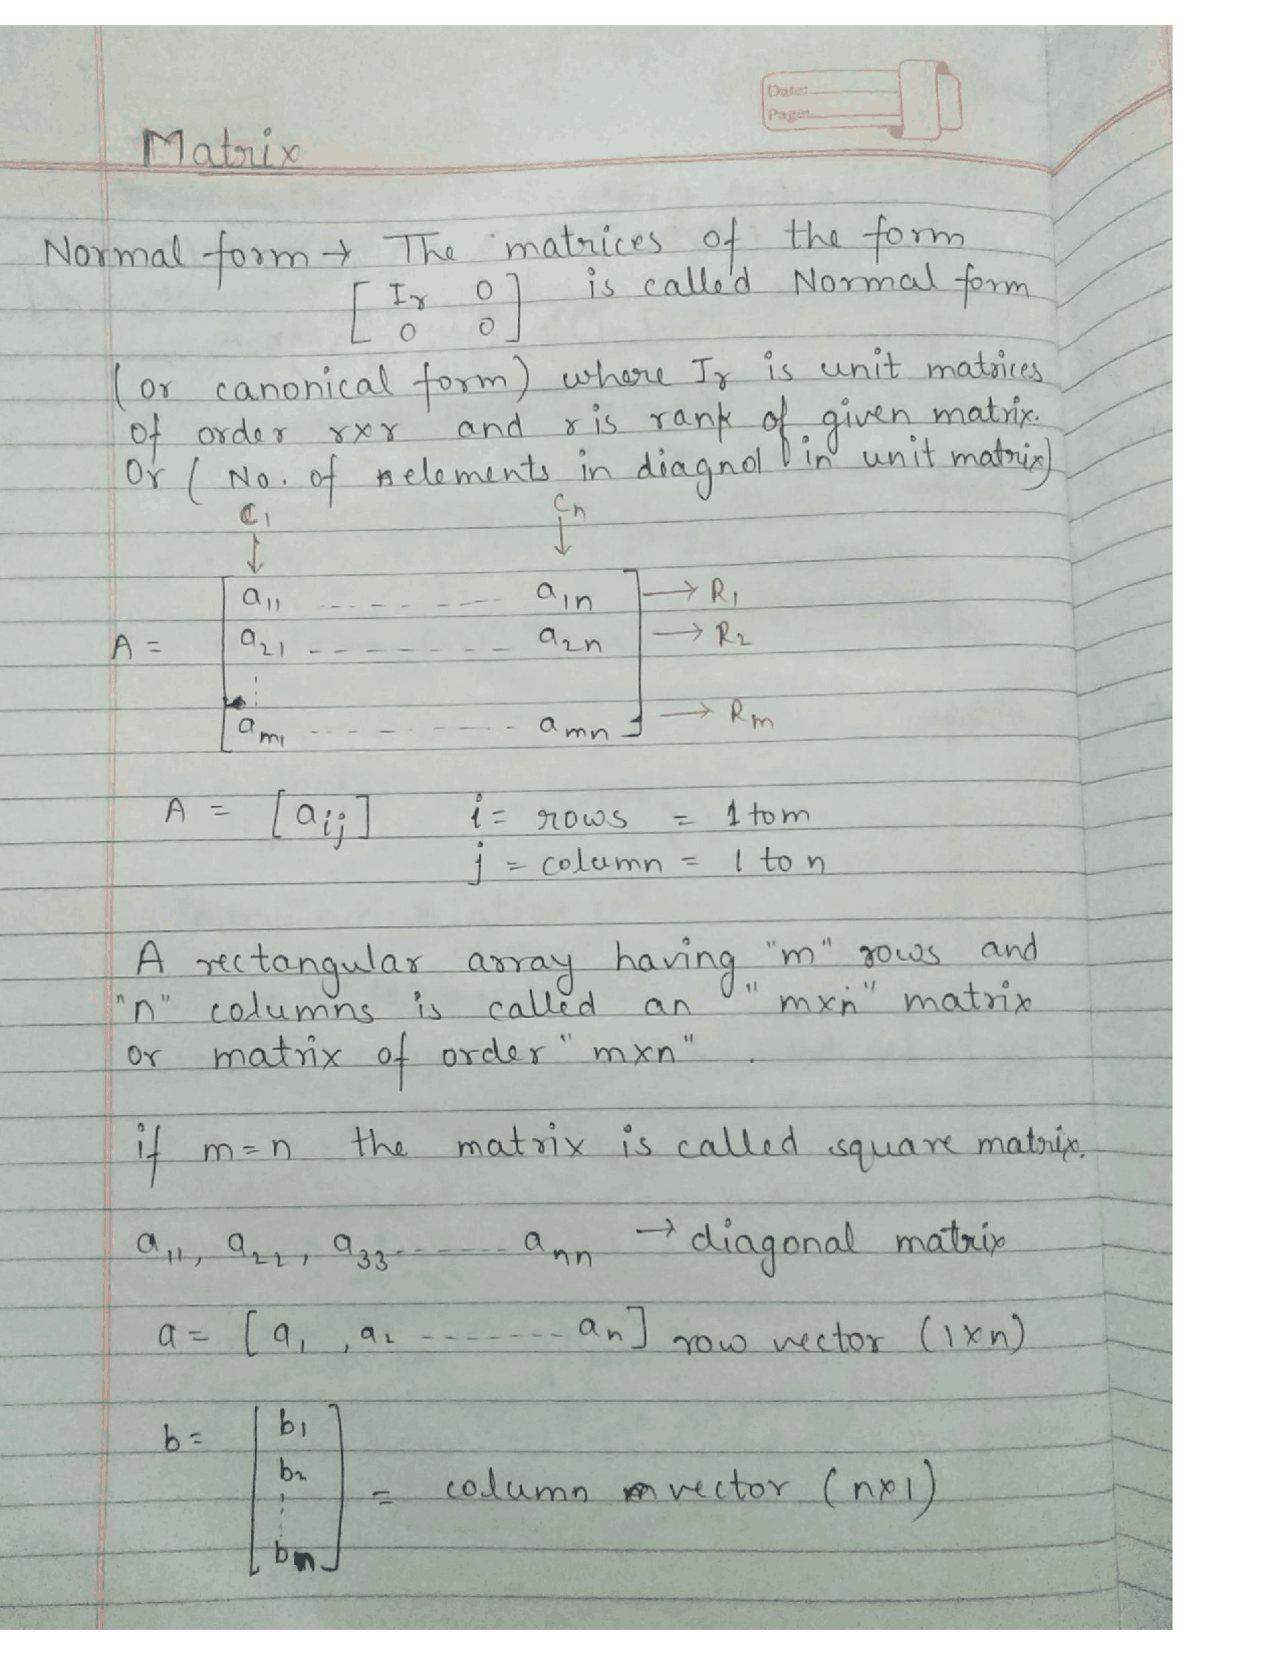 Date:
Page:
Matrix
Normal form → The matrices of the form
[ Ir 0
0 0 ] is called Normal form
(or canonical form) where Ir is unit matrices
of order rxr and r is rank of given matrix.
Or ( No. of elements in diagnol in unit matrix)
C1 Cn
↓ ↓
a11 ........ a1n → R1
A = a21 -------- a2n → R2
⋮
am1 -------- amn → Rm
A = [aij] i = rows = 1 to m
j = column = 1 to n
A rectangular array having "m" rows and
"n" columns is called an "mxn" matrix
or matrix of order "mxn" .
if m=n the matrix is called square matrix.
a11, a22, a33------- ann → diagonal matrix
a = [a1 , a2 ------- an] row vector (1xn)
b = [ b1
b2
⋮ = column vector (nx1)
bn ]